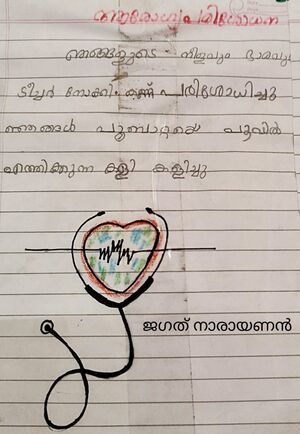 ആരോഗ്യപരിശോധന
ഞങ്ങളുടെ നീളവും ഭാരവും
ടീച്ചർ നോക്കി. കണ്ണ് പരിശോധിച്ചു
ഞങ്ങൾ പൂമ്പാറ്റയെ പൂവിൽ
എത്തിക്കുന്ന കളി കളിച്ചു
ജഗത് നാരായണൻ